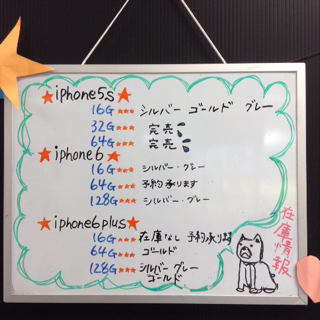 ★iphone5s★
16G★★★ シルバー ゴールド グレー
32G★★★ 完売
64G★★★ 完売
★iphone6★
16G★★★ シルバー・グレー
64G★★★ 予約承ります
128G★★★ シルバー・グレー
★iphone6plus★
16G★★★ 在庫なし 予約承ります
64G★★★ ゴールド
128G★★★ シルバー グレー
ゴールド
在庫情報